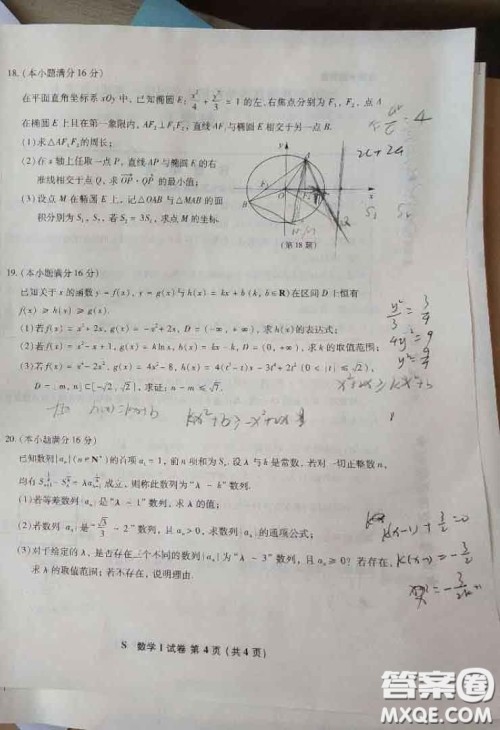 18.(本小题满分16分)
在平面直角坐标系xOy中,已知椭圆E:x²/4+y²/3=1的左、右焦点分别为F₁,F₂,点A
在椭圆E上且在第一象限内,AF₂⊥F₁F₂,直线AF₁与椭圆E相交于另一点B.
(1)求△AF₁F₂的周长;
(2)在x轴上任取一点P,直线AP与椭圆E的右
准线相交于点Q,求OP·QP的最小值;
(3)设点M在椭圆E上,记△OAB与△MAB的面
积分别为S₁,S₂,若S₂=3S₁,求点M的坐标.
(第18题)
19.(本小题满分16分)
已知关于x的函数y=f(x),y=g(x)与h(x)=kx+b(k,b∈R)在区间D上恒有
f(x)≥h(x)≥g(x).
(1)若f(x)=x²+2x,g(x)=-x²+2x,D=(-∞,+∞),求h(x)的表达式;
(2)若f(x)=x²-x+1,g(x)=klnx,h(x)=kx-k,D=(0,+∞),求k的取值范围;
(3)若f(x)=x⁴-2x²,g(x)=4x²-8,h(x)=4(t³-t)x-3t⁴+2t²(0<|t|≤√2),
D=[m,n]⊂[-√2,√2],求证:n-m≤√7.
20.(本小题满分16分)
已知数列{aₙ}(n∈N*)的首项a₁=1,前n项和为Sₙ.设λ与k是常数.若对一切正整数n,
成立,则称此数列为“λ-k”数列.
(1)若等差数列{aₙ}是“λ-1”数列,求λ的值;
(2)若数列{aₙ}是“√3/3-2”数列,且aₙ>0,求数列{aₙ}的通项公式;
(3)对于给定的λ,是否存在三个不同的数列{aₙ}为“λ-3”数列,且aₙ≥0?若存在,
求λ的取值范围;若不存在,说明理由.
S 数学Ⅰ试卷 第4页(共4页)
答案卷
MXQE.COM